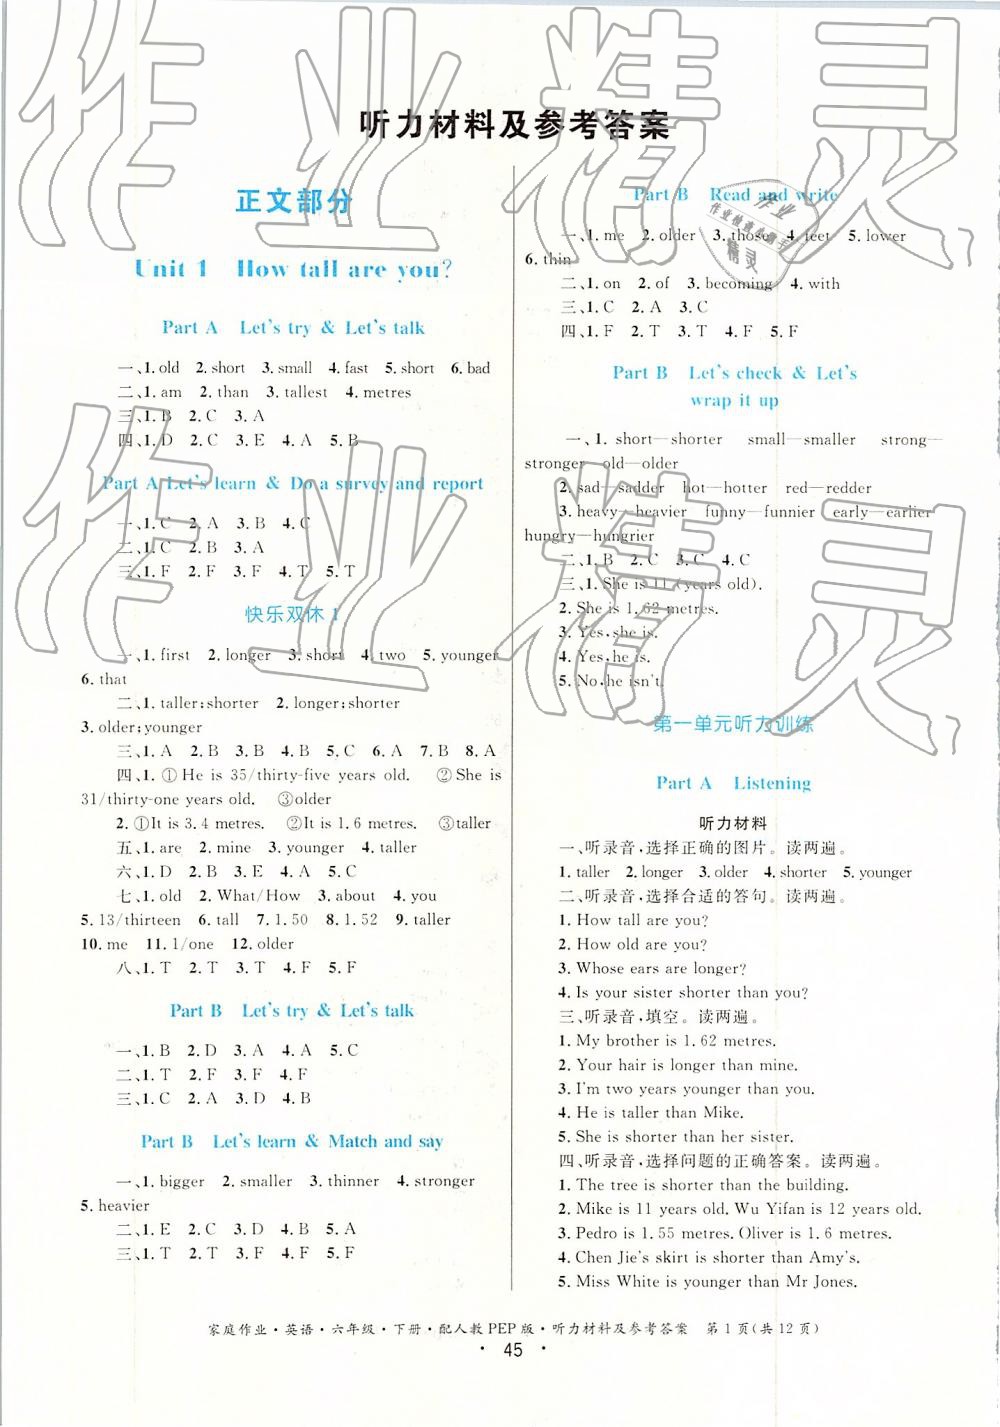 听力材料及参考答案
正文部分
Unit 1 How tall are you?
Part A Let's try & Let's talk
一、1. old 2. short 3. small 4. fast 5. short 6. bad
二、1. am 2. than 3. tallest 4. metres
三、1. B 2. C 3. A
四、1. D 2. C 3. E 4. A 5. B
Part A Let's learn & Do a survey and report
一、1. C 2. A 3. B 4. C
二、1. C 2. B 3. A
三、1. F 2. F 3. F 4. T 5. T
快乐双休 1
一、1. first 2. longer 3. short 4. two 5. younger
6. that
二、1. taller;shorter 2. longer;shorter
3. older;younger
三、1. A 2. B 3. B 4. B 5. C 6. A 7. B 8. A
四、1. ①He is 35/thirty-five years old. ②She is
31/thirty-one years old. ③older
2. ①It is 3.4 metres. ②It is 1.6 metres. ③taller
五、1. are 2. mine 3. younger 4. taller
六、1. D 2. B 3. E 4. A 5. C
七、1. old 2. What/How 3. about 4. you
5. 13/thirteen 6. tall 7. 1.50 8. 1.52 9. taller
10. me 11. 1/one 12. older
八、1. T 2. T 3. T 4. F 5. F
Part B Let's try & Let's talk
一、1. B 2. D 3. A 4. A 5. C
二、1. T 2. F 3. F 4. F
三、1. C 2. A 3. D 4. B
Part B Let's learn & Match and say
一、1. bigger 2. smaller 3. thinner 4. stronger
5. heavier
二、1. E 2. C 3. D 4. B 5. A
三、1. T 2. T 3. F 4. F 5. F
Part B Read and write
一、1. me 2. older 3. those 4. feet 5. lower
6. thin
二、1. on 2. of 3. becoming 4. with
三、1. C 2. A 3. C
四、1. F 2. T 3. T 4. F 5. F
Part B Let's check & Let's
wrap it up
一、1. short—shorter small—smaller strong—
stronger old—older
2. sad—sadder hot—hotter red—redder
3. heavy—heavier funny—funnier early—earlier
hungry—hungrier
二、1. B 2. C 3. C 4. C
三、1. She is 11 (years old).
2. She is 1.62 metres.
3. Yes, she is.
4. Yes, he is.
5. No, he isn't.
第一单元听力训练
Part A Listening
听力材料
一、听录音,选择正确的图片。读两遍。
1. taller 2. longer 3. older 4. shorter 5. younger
二、听录音,选择合适的答句。读两遍。
1. How tall are you?
2. How old are you?
3. Whose ears are longer?
4. Is your sister shorter than you?
三、听录音,填空。读两遍。
1. My brother is 1.62 metres.
2. Your hair is longer than mine.
3. I'm two years younger than you.
4. He is taller than Mike.
5. She is shorter than her sister.
四、听录音,选择问题的正确答案。读两遍。
1. The tree is shorter than the building.
2. Mike is 11 years old. Wu Yifan is 12 years old.
3. Pedro is 1.55 metres. Oliver is 1.6 metres.
4. Chen Jie's skirt is shorter than Amy's.
5. Miss White is younger than Mr Jones.
家庭作业·英语·六年级·下册·配人教PEP版·听力材料及参考答案 第1页(共12页)
· 45 ·
作业精灵
作业精灵